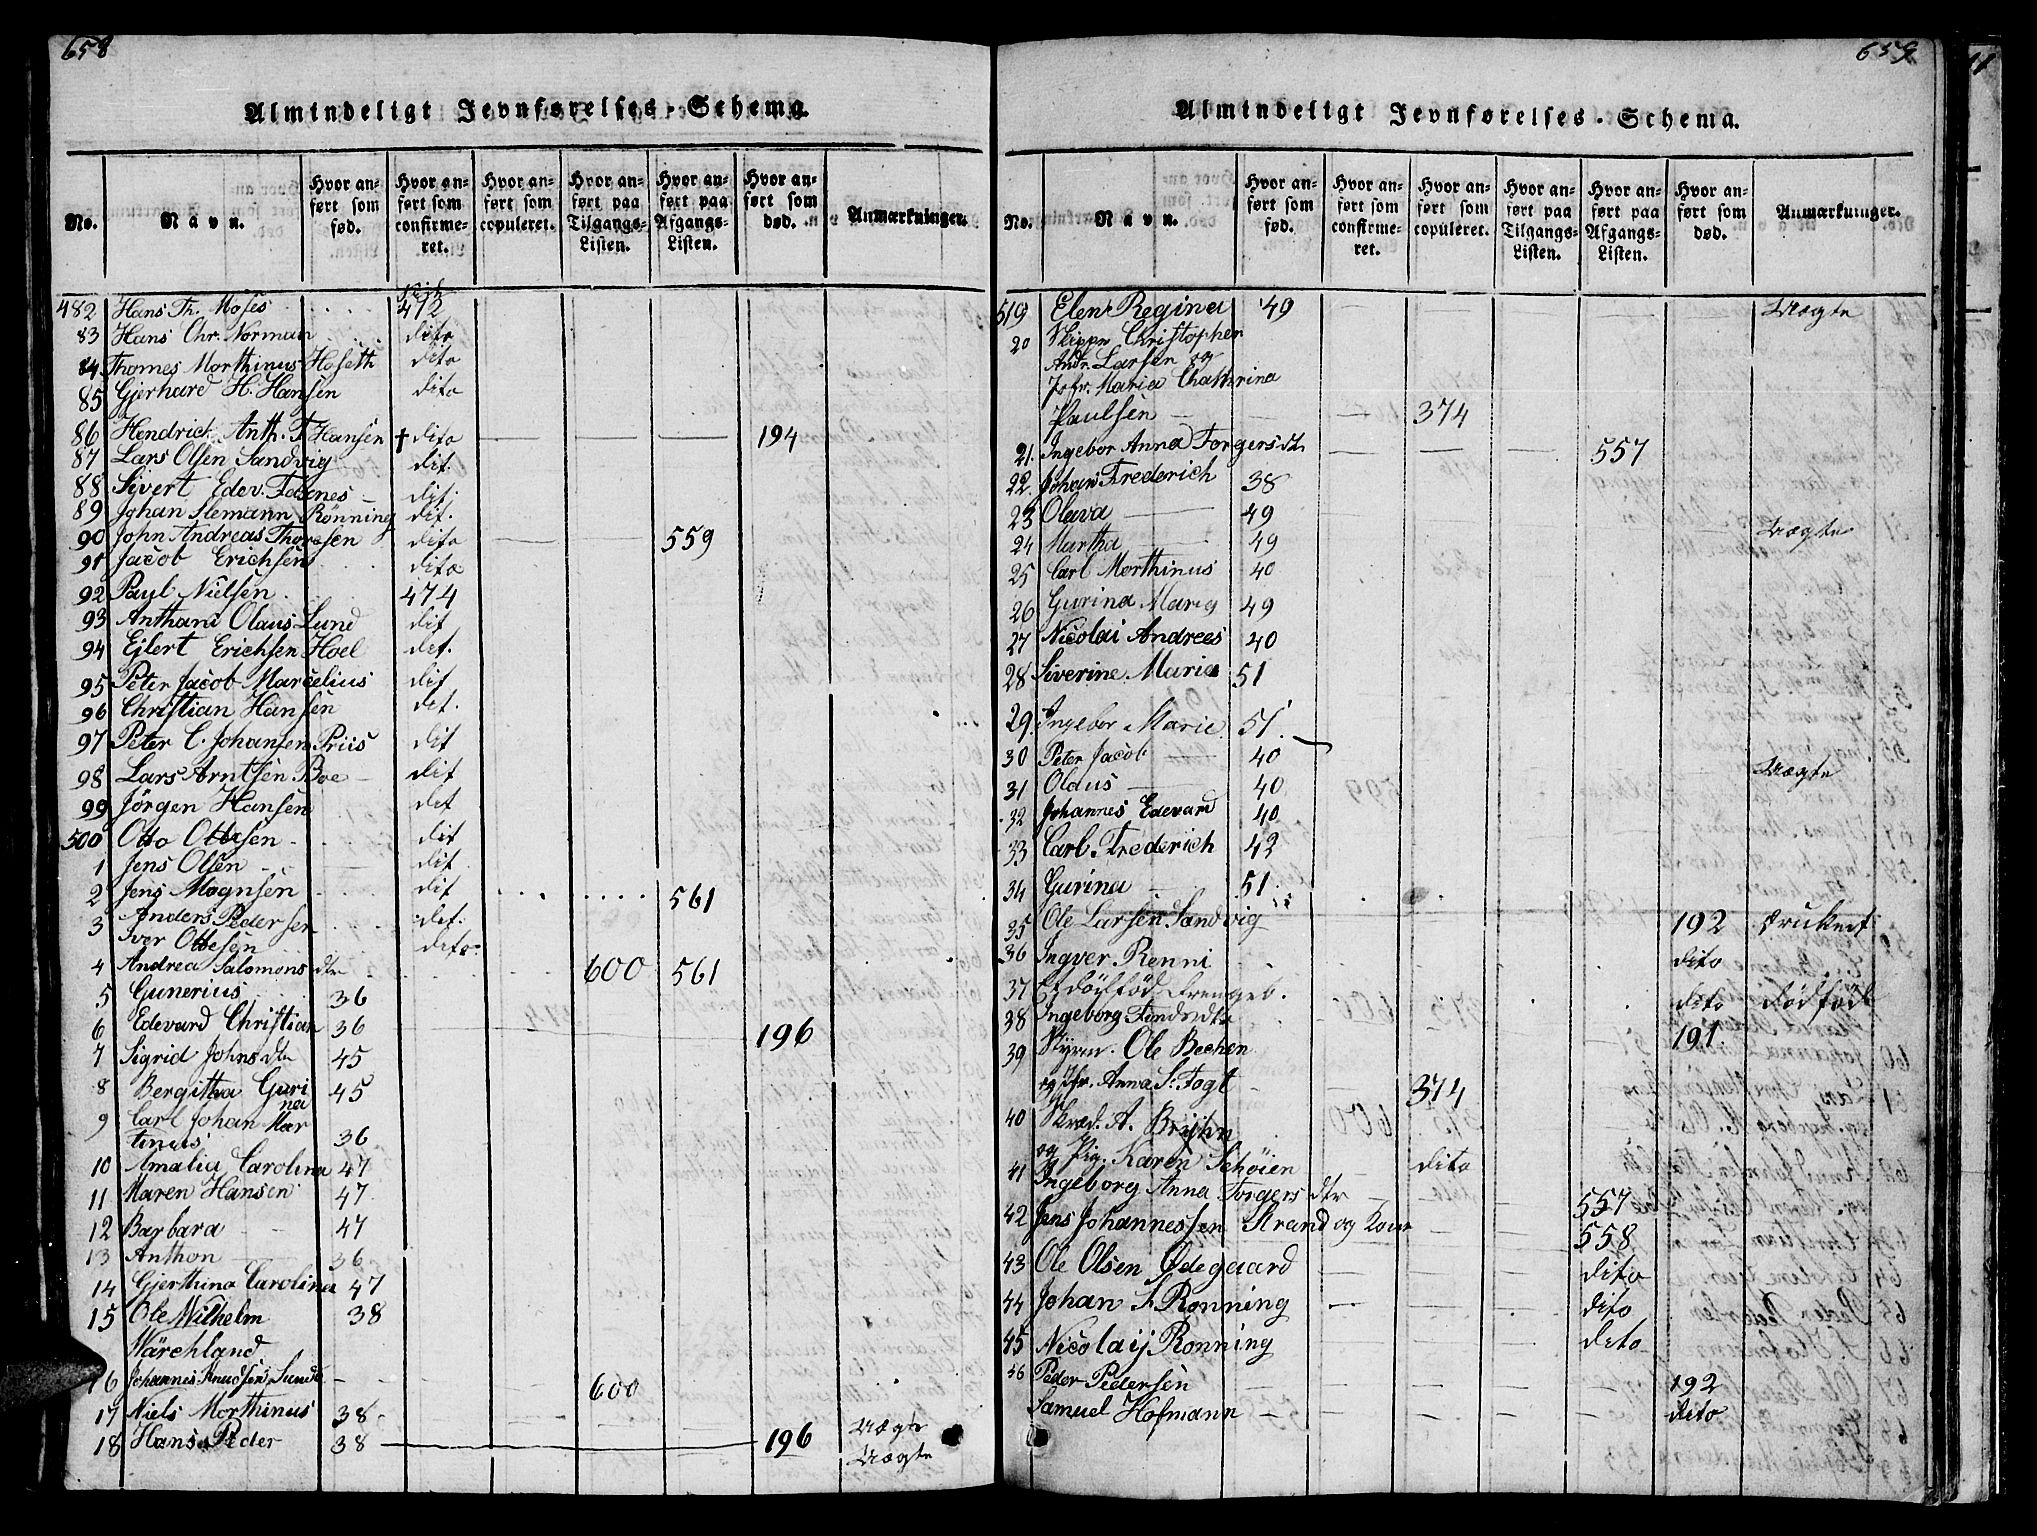 658
Almindeligt Jevnførelses-Schema.
No. Navn. Hvor anført som fød. Hvor anført som confirmeret. Hvor anført som copuleret. Hvor anført paa Tilgangs-Listen. Hvor anført paa Afgangs-Listen. Hvor anført som død. Anmærkninger.
482 Hans Th. Moses 472
83 Hans Chr. Norman dito
84 Thomes Morthinus Hoseth dito
85 Gjerhard H. Hansen dito
86 Hendrich Anth. F Hansen † dito 194
87 Lars Olsen Sandvig dit.
88 Sivert Edev. dit.
89 Johan Slemann Rönning dit.
90 John Andreas Thoresen dito 559
91 Jacob Erichsen dito
92 Paul Nielsen 474
93 Anthani Olaus Lund dit
94 Ejlert Erichsen Hoel det.
95 Peter Jacob Marcelius dit
96 Christian Hansen det.
97 Peter C. Johansen Priis dit
98 Lars Arntsen Boe dit
99 Jörgen Hansen det
500 Otto Ottesen dit
1 Jens Olsen dit
2 Jens Magnsen dit 561
3 Anders Pedersen det.
Iver Ottesen dito
4 Andrea Salomons dtr 600 561
5 Gunerius 36
6 Edevard Christian 36 196
7 Sigrid Johns dtr 45
8 Bergitha Guri 45
na
9 Carl Johan Mar
tinus 36
10 Amalia Carolina 47
11 Maren Hansen 47
12 Barbara 47
13 Anthon 36
14 Gjerthina Carolina 47
15 Ole Wilhelm 38
Wärchland
16 Johannes Knudsen Sunde 600
17 Niels Morthinus 38 Vægte
18 Hans Peder 38 196 Vægte
659
Almindeligt Jevnførelses-Schema.
No. Navn. Hvor anført som fød. Hvor anført som confirmeret. Hvor anført som copuleret. Hvor anført paa Tilgangs-Listen. Hvor anført paa Afgangs-Listen. Hvor anført som død. Anmærkninger.
519 Elen Regina 49 Vægte
20 Skippr Christopher
Andr. Larsen og
Jofr. Maria Chathrina
Paulsen 374
21. Ingebor Anna Torgersdtr 557
22. Johan Frederich 38
23 Olava 49
24 Martha 49 Vægte
25 Carl Morthinus 40
26 Gurina Maria 49
27 Nicolai Andrees 40
28 Siverine Maria 51
29. Ingebor Marie 51.
30 Peter Jacob 40
31 Olaus 40 Vægte
32 Johannes Edevard 40
33 Carl Frederich 42
34 Gurina 51
35 Ole Larsen Sandvig 192 druknet
36 Ingver Renni dito
37 Et dödföd Drengeb. dito dödföd
38 Ingeborg
39 Styrm. Ole Bechen 191
og Jfr. Anna S. Fogt 374
40 Skræd. A. Brijhn
og Pig. Karen Schöien dito
41 Ingeborg Anna Torgers dtr 557
42 Jens Johannessen Strand og Kone 558
43 Ole Olsen Ødegaard dito
44 Johan S Ronning dito
45 Nicolaij Ronning dito
46 Peder Pedersen 192
Samuel Hofmann dito